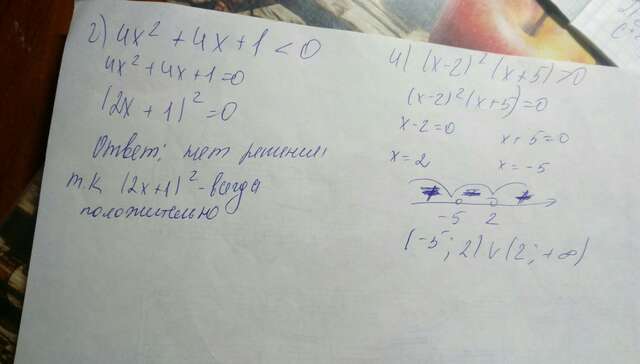 г) 4x² + 4x + 1 < 0
4x² + 4x + 1 = 0
(2x + 1)² = 0
Ответ: нет решения
т.к (2x+1)² - всегда
положительно
и) (x-2)² (x+5) > 0
(x-2)² (x+5) = 0
x-2=0 x+5=0
x=2 x=-5
-5 2
(-5; 2) ∪ (2; +∞)